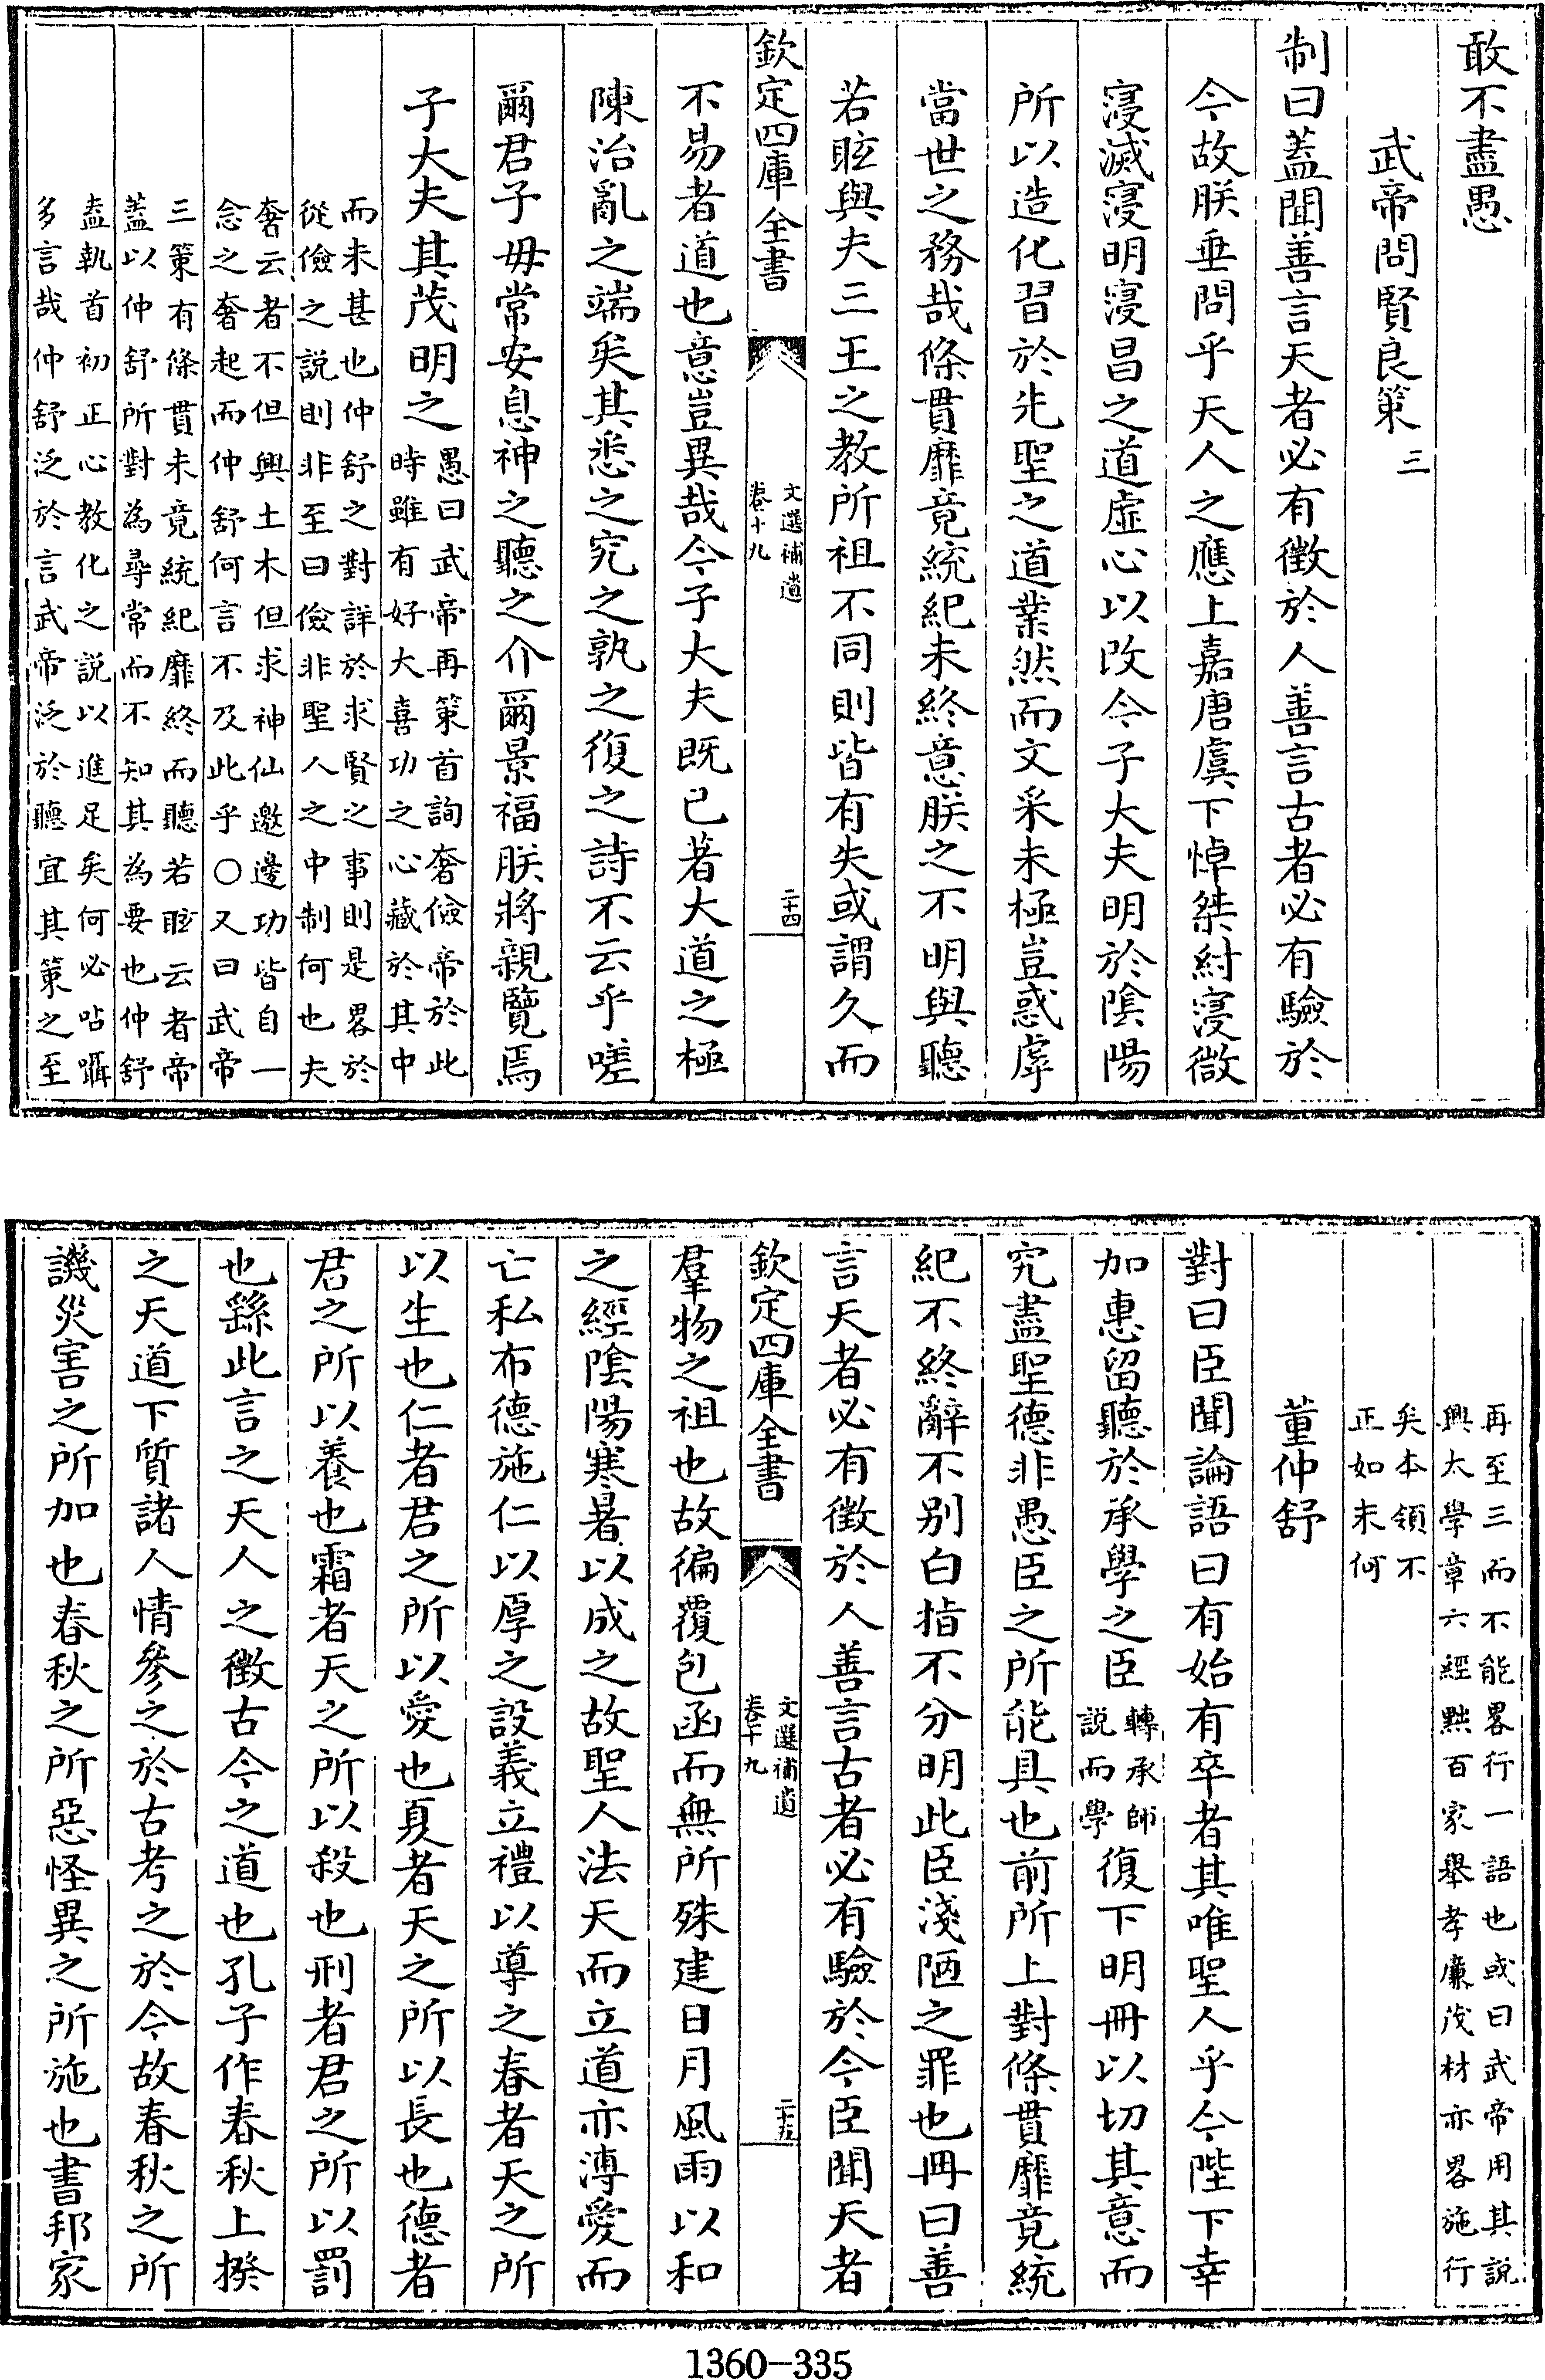 敢不盡愚
武帝問賢良策三
制曰蓋聞善言天者必有徵於人善言古者必有驗於
今故朕垂問乎天人之應上嘉唐虞下悼桀紂寖微
寖滅寖明寖昌之道虛心以改今子大夫明於陰陽
所以造化習於先聖之道業然而文采未極豈惑虖
當世之務哉條貫靡竟統紀未終意朕之不明與聽
若眩與夫三王之教所祖不同則皆有失或謂久而
欽定四庫全書
文選補遺
卷十九
二十四
不易者道也意豈異哉今子大夫既已著大道之極
陳治亂之端矣其悉之究之孰之復之詩不云乎嗟
爾君子毋常安息神之聽之介爾景福朕將親覽焉
子大夫其茂明之
愚曰武帝再策首詢奢儉帝於此
時雖有好大喜功之心藏於其中
而未甚也仲舒之對詳於求賢之事則是畧於
從儉之說則非至曰儉非聖人之中制何也夫
奢云者不但興土木但求神仙邀邊功皆自一
念之奢起而仲舒何言不及此乎○又曰武帝
三策有條貫未竟統紀靡終而聽若眩云者帝
蓋以仲舒所對為尋常而不知其為要也仲舒
盍執首初正心教化之說以進足矣何必呫囁
多言哉仲舒泛於言武帝泛於聽宜其策之至
再至三而不能畧行一語也或曰武帝用其說
興太學章六經黜百家舉孝廉茂材亦畧施行
矣本領不
正如末何
董仲舒
對曰臣聞論語曰有始有卒者其唯聖人乎今陛下幸
加惠留聽於承學之臣
轉承師
說而學
復下明冊以切其意而
究盡聖德非愚臣之所能具也前所上對條貫靡竟統
紀不終辭不别白指不分明此臣淺陋之罪也冊曰善
言天者必有徵於人善言古者必有驗於今臣聞天者
欽定四庫全書
文選補遺
卷十九
二十五
羣物之祖也故徧覆包函而無所殊建日月風雨以和
之經陰陽寒暑以成之故聖人法天而立道亦溥愛而
亡私布德施仁以厚之設義立禮以導之春者天之所
以生也仁者君之所以愛也夏者天之所以長也德者
君之所以養也霜者天之所以殺也刑者君之所以罰
也繇此言之天人之徵古今之道也孔子作春秋上揆
之天道下質諸人情參之於古考之於今故春秋之所
譏災害之所加也春秋之所惡怪異之所施也書邦家
1360-335